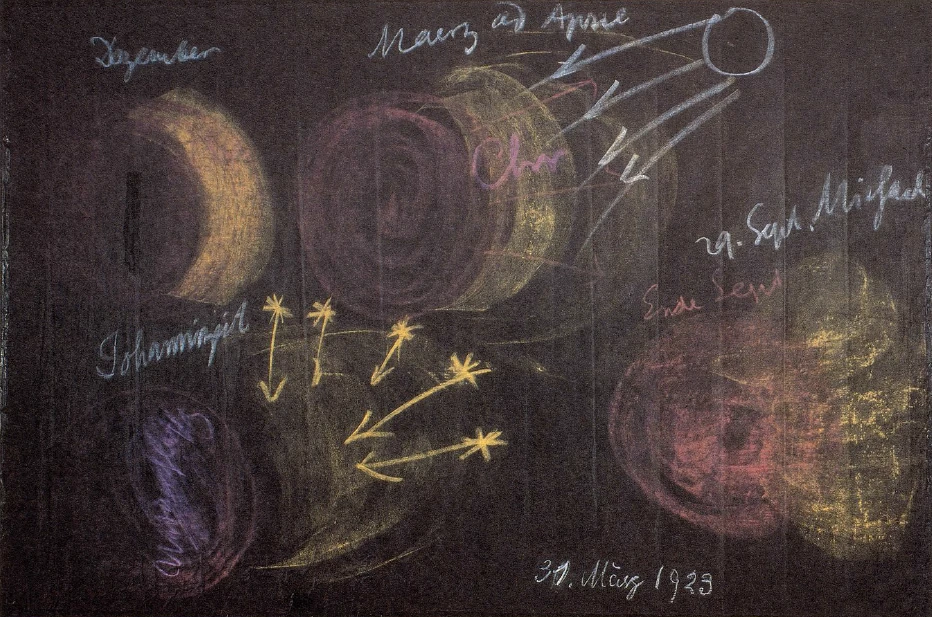 Dezember
Maerz od April
Chr
29. Sept. Michael
Ende Sept
Johanniszeit
31. März 1923